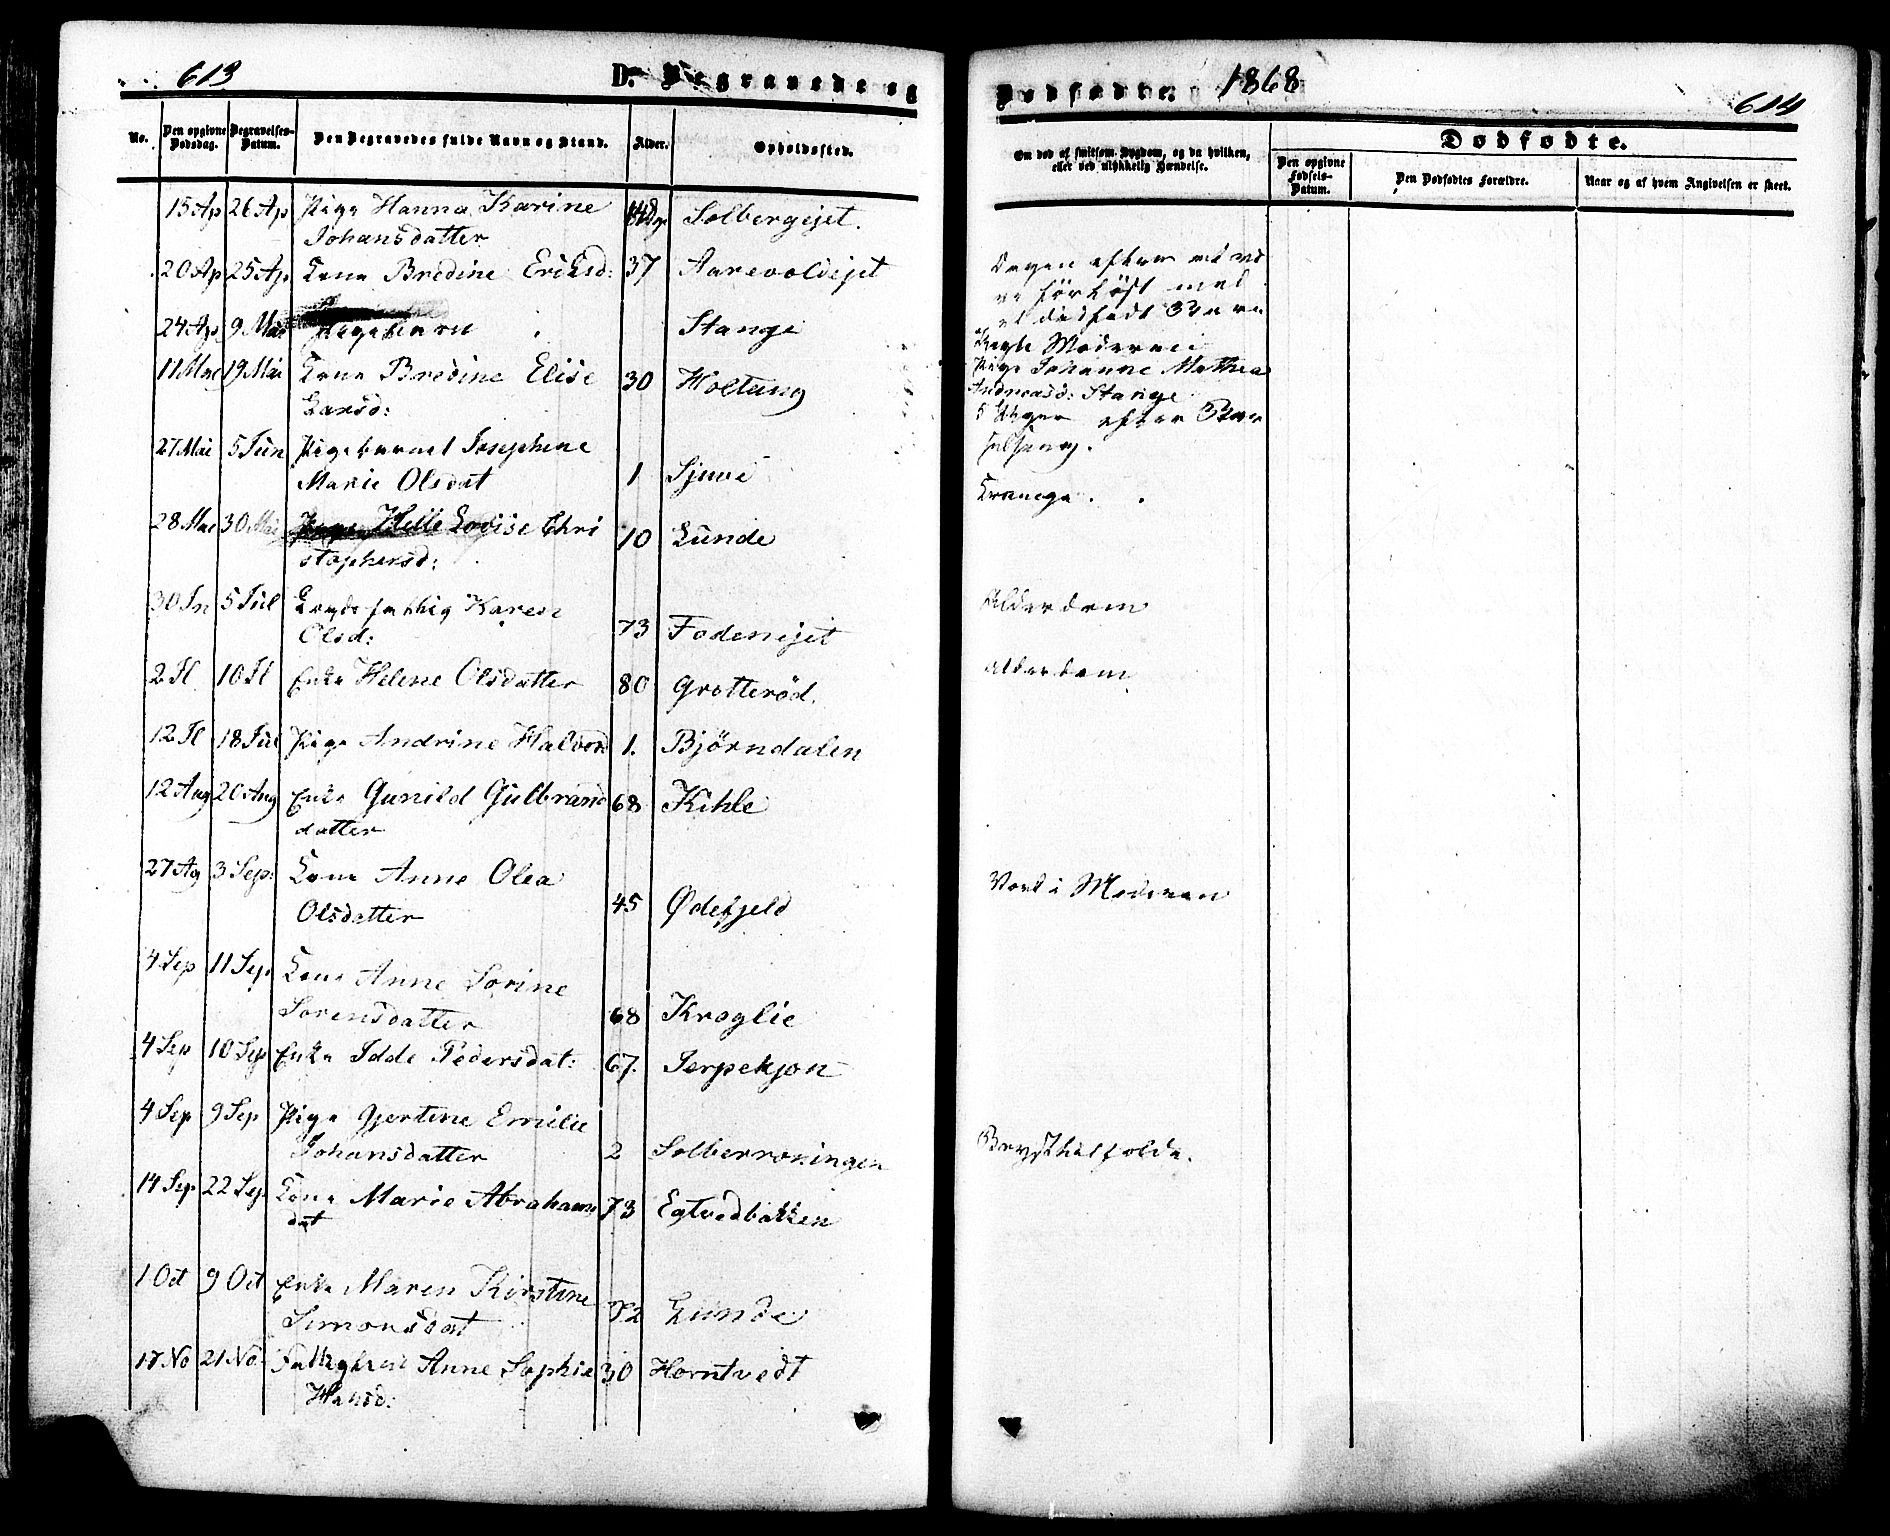 613
D. Begravede og
No.
Den opgivne Dødsdag.
Begravelses-Datum.
Den Begravedes fulde Navn og Stand.
Alder.
Opholdssted.
15 Ap 26 Ap Pige Hanna Karine Solbergejet.
Johansdatter
20 Ap 25 Ap Kone Bredine Eriksd: 37 Aarevoldejet
24 Ap 9 Mai Pigebarn Stange
11 Mai 19 Mai Kone Bredine Elise 30 Holtung
Larsd:
27 Mai 5 Jun Pigebarnet Josephine
Marie Olsdat 1 Sjuve
28 Mai 30 Mai Pige Helle Lovise Chri 10 Lunde
stophersd:
30 Jn 5 Jul Lægdsfattig Karen
Olsd: 73 Fodenejet
2 Jl 10 Jl Enke Helene Olsdatter 80 Grotterød.
12 Jl 18 Jul Pige Andrine Halvord 1. Bjørndalen
12 Aug 20 Aug Enke Gunild Gulbrand 68 Kihle
datter
27 Ag 3 Sep: Kone Anne Olea
Olsdatter 45 Ødefjeld
4 Sep 11 Sep Kone Anne Sorine
Sorensdatter 68 Kroglie
4 Sep 10 Sep Enke Idde Pedersdat: 67. Jerpekjøn
4 Sep 9 Sep Pige Gjertine Emilie
Johansdatter 2 Solberroningen
14 Sep 22 Sep Kone Marie Abraham 73 Egtvedbakken
dat
1 Oct 9 Oct Enke Maren Kirstine
Simonsdat 72 Lunde
17 No 21 No Fattiglem Anne Sophie 30 Horntvedt
Hansd:
Dødfødte. 1868
614
Om død af smitsom Sygdom, og da hvilken,
eller ved ulykkelig Hændelse.
Dødfødte.
Den opgivne Fødsels-Datum.
Den Dødfødtes Forældre.
Naar og af hvem Angivelsen er skeet.
Dagen efter at
være forløst med
et dødfødt Barn
Moderen
Pige Johanne Mathea
Andreasd: Stange
5 Uger efter Bar
selseng.
Krampe.
Alderdom
Alderdom
Vord i Moderen
Brysthulfolde.